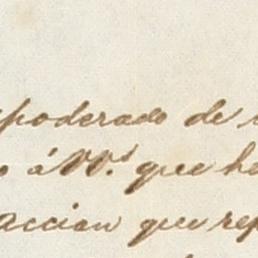 apoderado de
o á VV.s que he
accion que rep